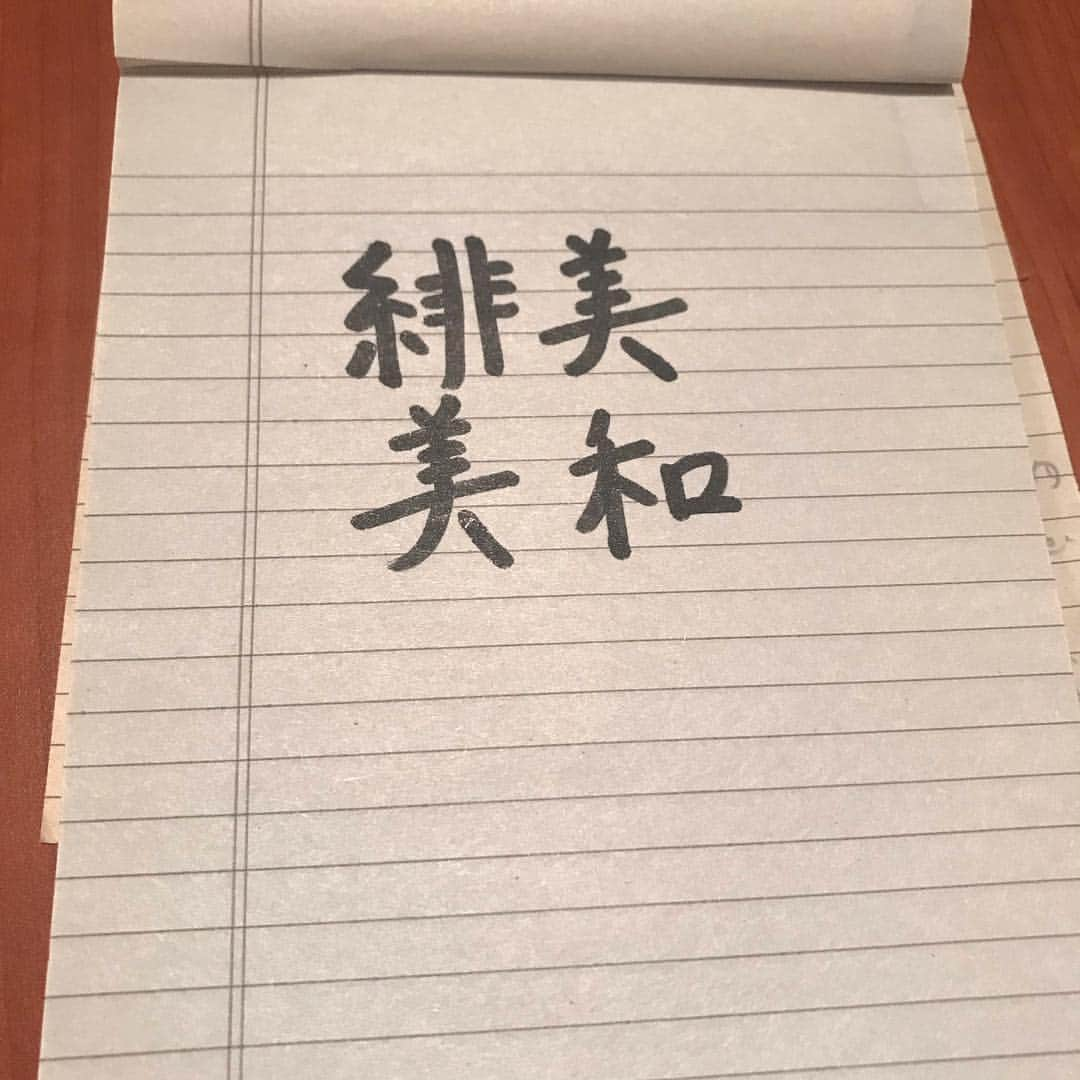 緋美
美和